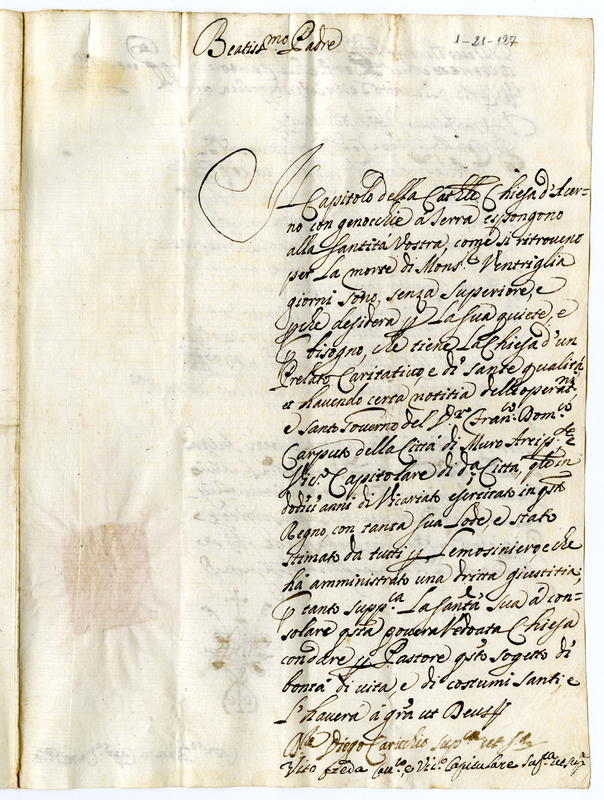 Beatiss.mo Padre
1-21-127
Il Capitolo della Cat.le Chiesa d'Acer=
no con genocchie à Terra espongono
alla Santità Vostra, come si ritroveno
per La morte di Mons.r Ventriglia
giorni sono, senza Superiore, e
p̱che desidera p̱ La sua quiete, e
p̱ bisogno, che tiene La Chiesa d'un
Prelato Caritativo, e di Sante qualità
et havendo certa notitia dell'operat.ni
e Santo Governo del D.re Fran.co Dom.co
Carputo della Città di Muro Areip.te e
Vic.o Capitolare di d.a Città, q.le in
dodici anni di Vicariato esercitato in q.sto
Regno con tanta sua Lode, e stato
stimato da tutti p̱ Lemosiniero, e che
hà amministrato una dritta giustitia,
p̱ tanto supp.ca La Santà sua à con=
solare q.sta povera Vedoata Chiesa
con dare p̱ Pastore q.sto sogetto di
bontà di vita e di costumi santi, e
l'haverà à gr.a ut Deus
Diego Caricchio sup.ca ut s.a
Vito Vic.o Capitulare sup.ca ut sup.a